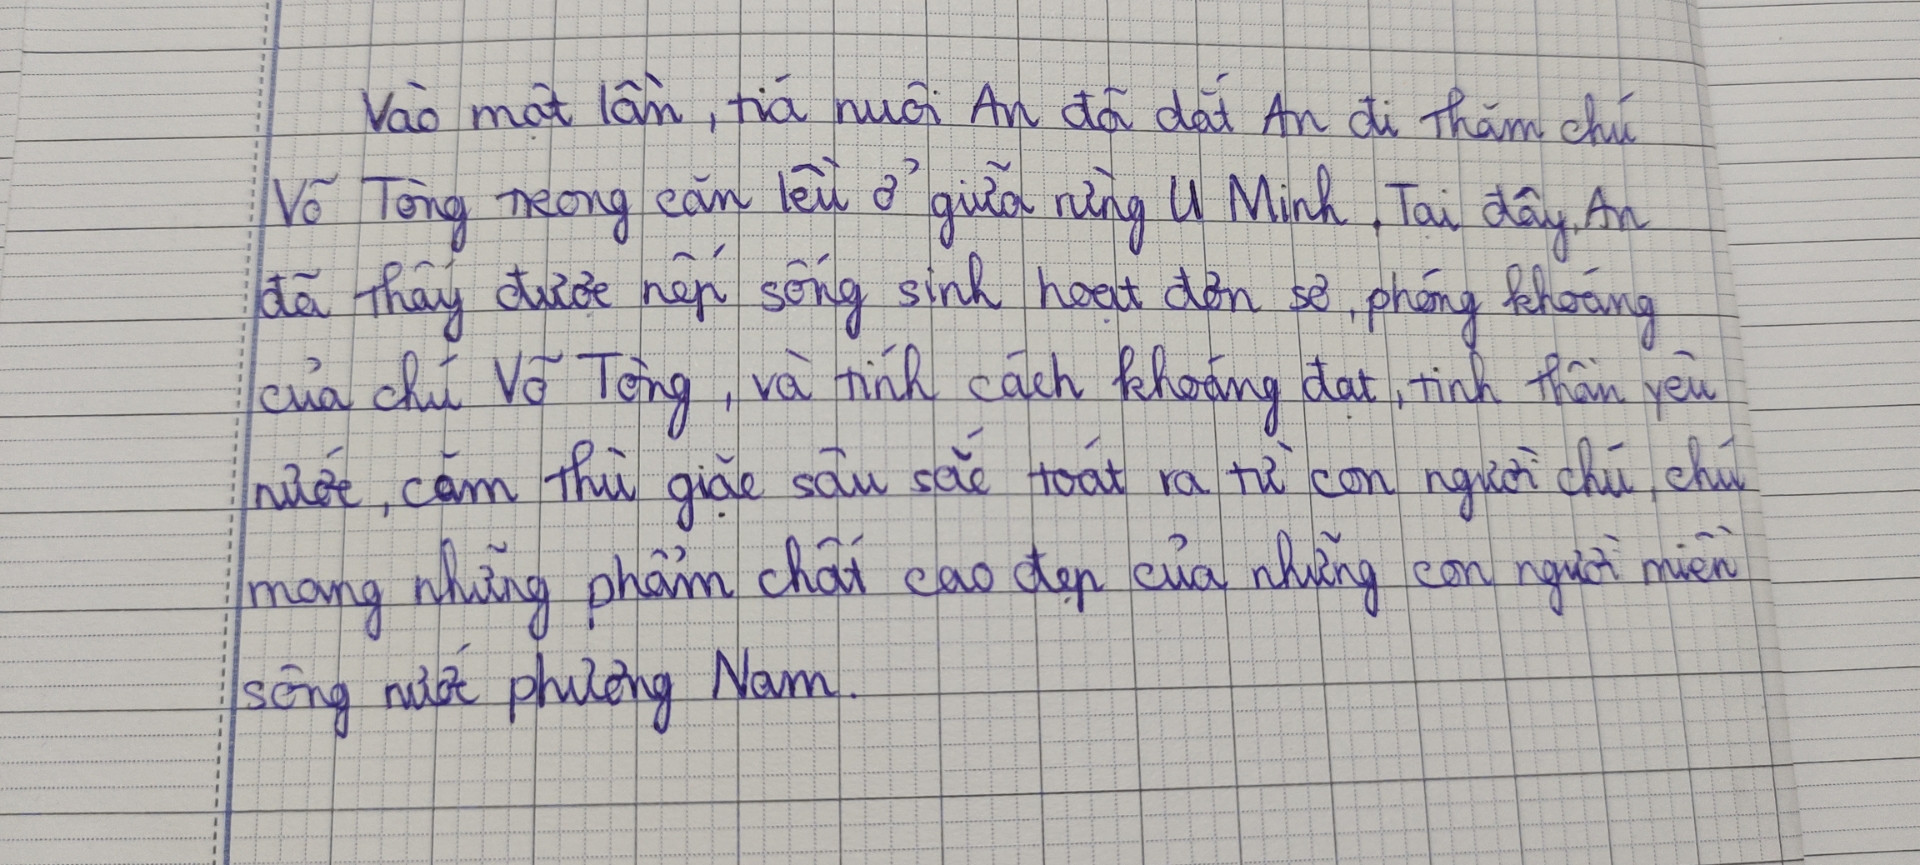 Vào một lần, tía nuôi An đã dắt An đi thăm chú
Võ Tòng trong căn lều ở giữa rừng U Minh. Tại đây, An
đã thấy được nếp sống sinh hoạt đơn sơ, phóng khoáng
của chú Võ Tòng, và tính cách khoáng đạt, tinh thần yêu
nước, căm thù giặc sâu sắc toát ra từ con người chú, chú
mang những phẩm chất cao đẹp của những con người miền
sông nước phương Nam.